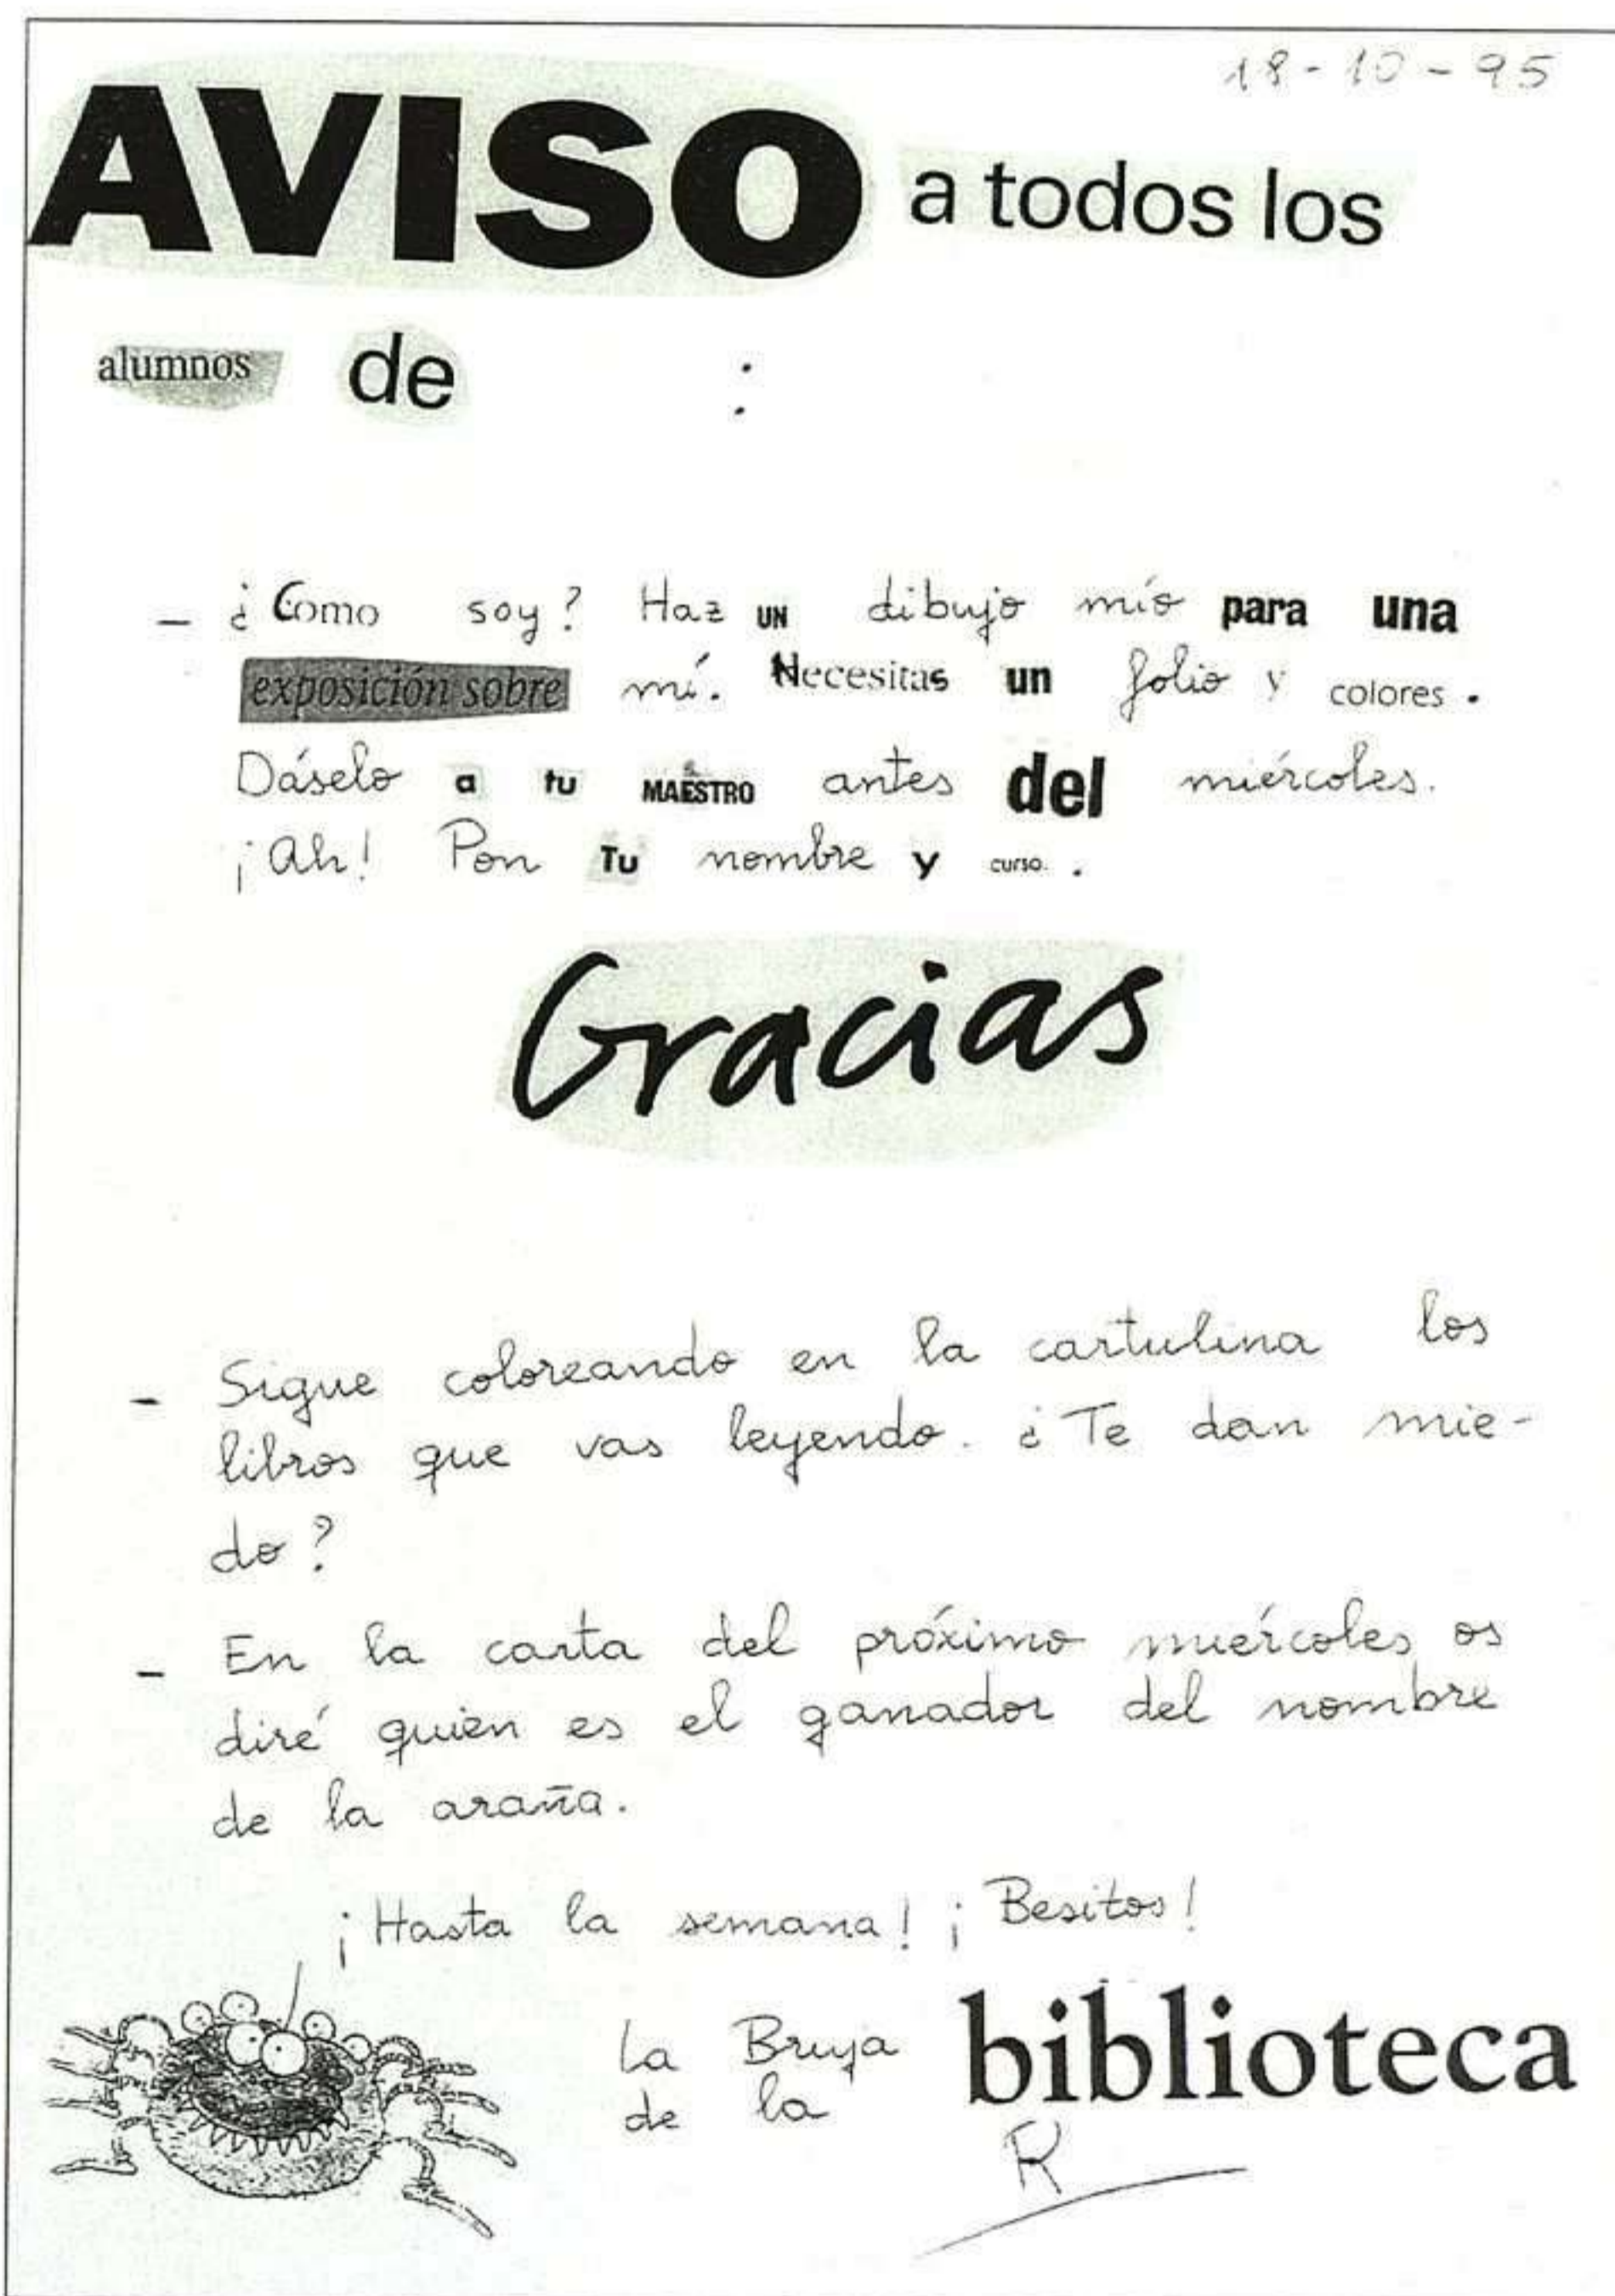 18-10-95
AVISO a todos los
alumnos de :
- ¿Como soy? Haz UN dibujo mío para una
exposición sobre mí. Necesitas un folio y colores.
Dáselo a tu MAESTRO antes del miércoles.
¡Ah! Pon Tu nombre y curso. .
Gracias
- Sigue coloreando en la cartulina los
libros que vas leyendo. ¿Te dan mie-
do?
- En la carta del próximo miércoles os
diré quién es el ganador del nombre
de la araña.
¡Hasta la semana! ¡Besitos!
La Bruja
de la biblioteca
R